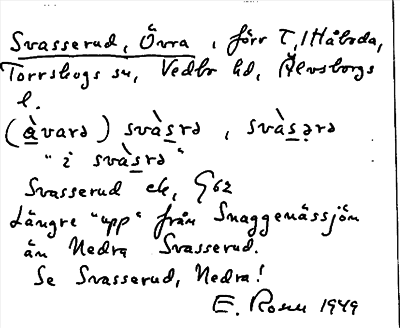 Svasserud, Övra, förr T. 1 Håbyda,
Torrskogs sn, Vedbo hd, Älvsborgs
l.
(à̱varə) svàs̱rə, svàs̱ərə
"i svàs̱rə"
Svasserud ek, G 62
Längre "upp" från Snaggenässjön
än Nedra Svasserud.
Se Svasserud, Nedra!
E. Rosen 1949